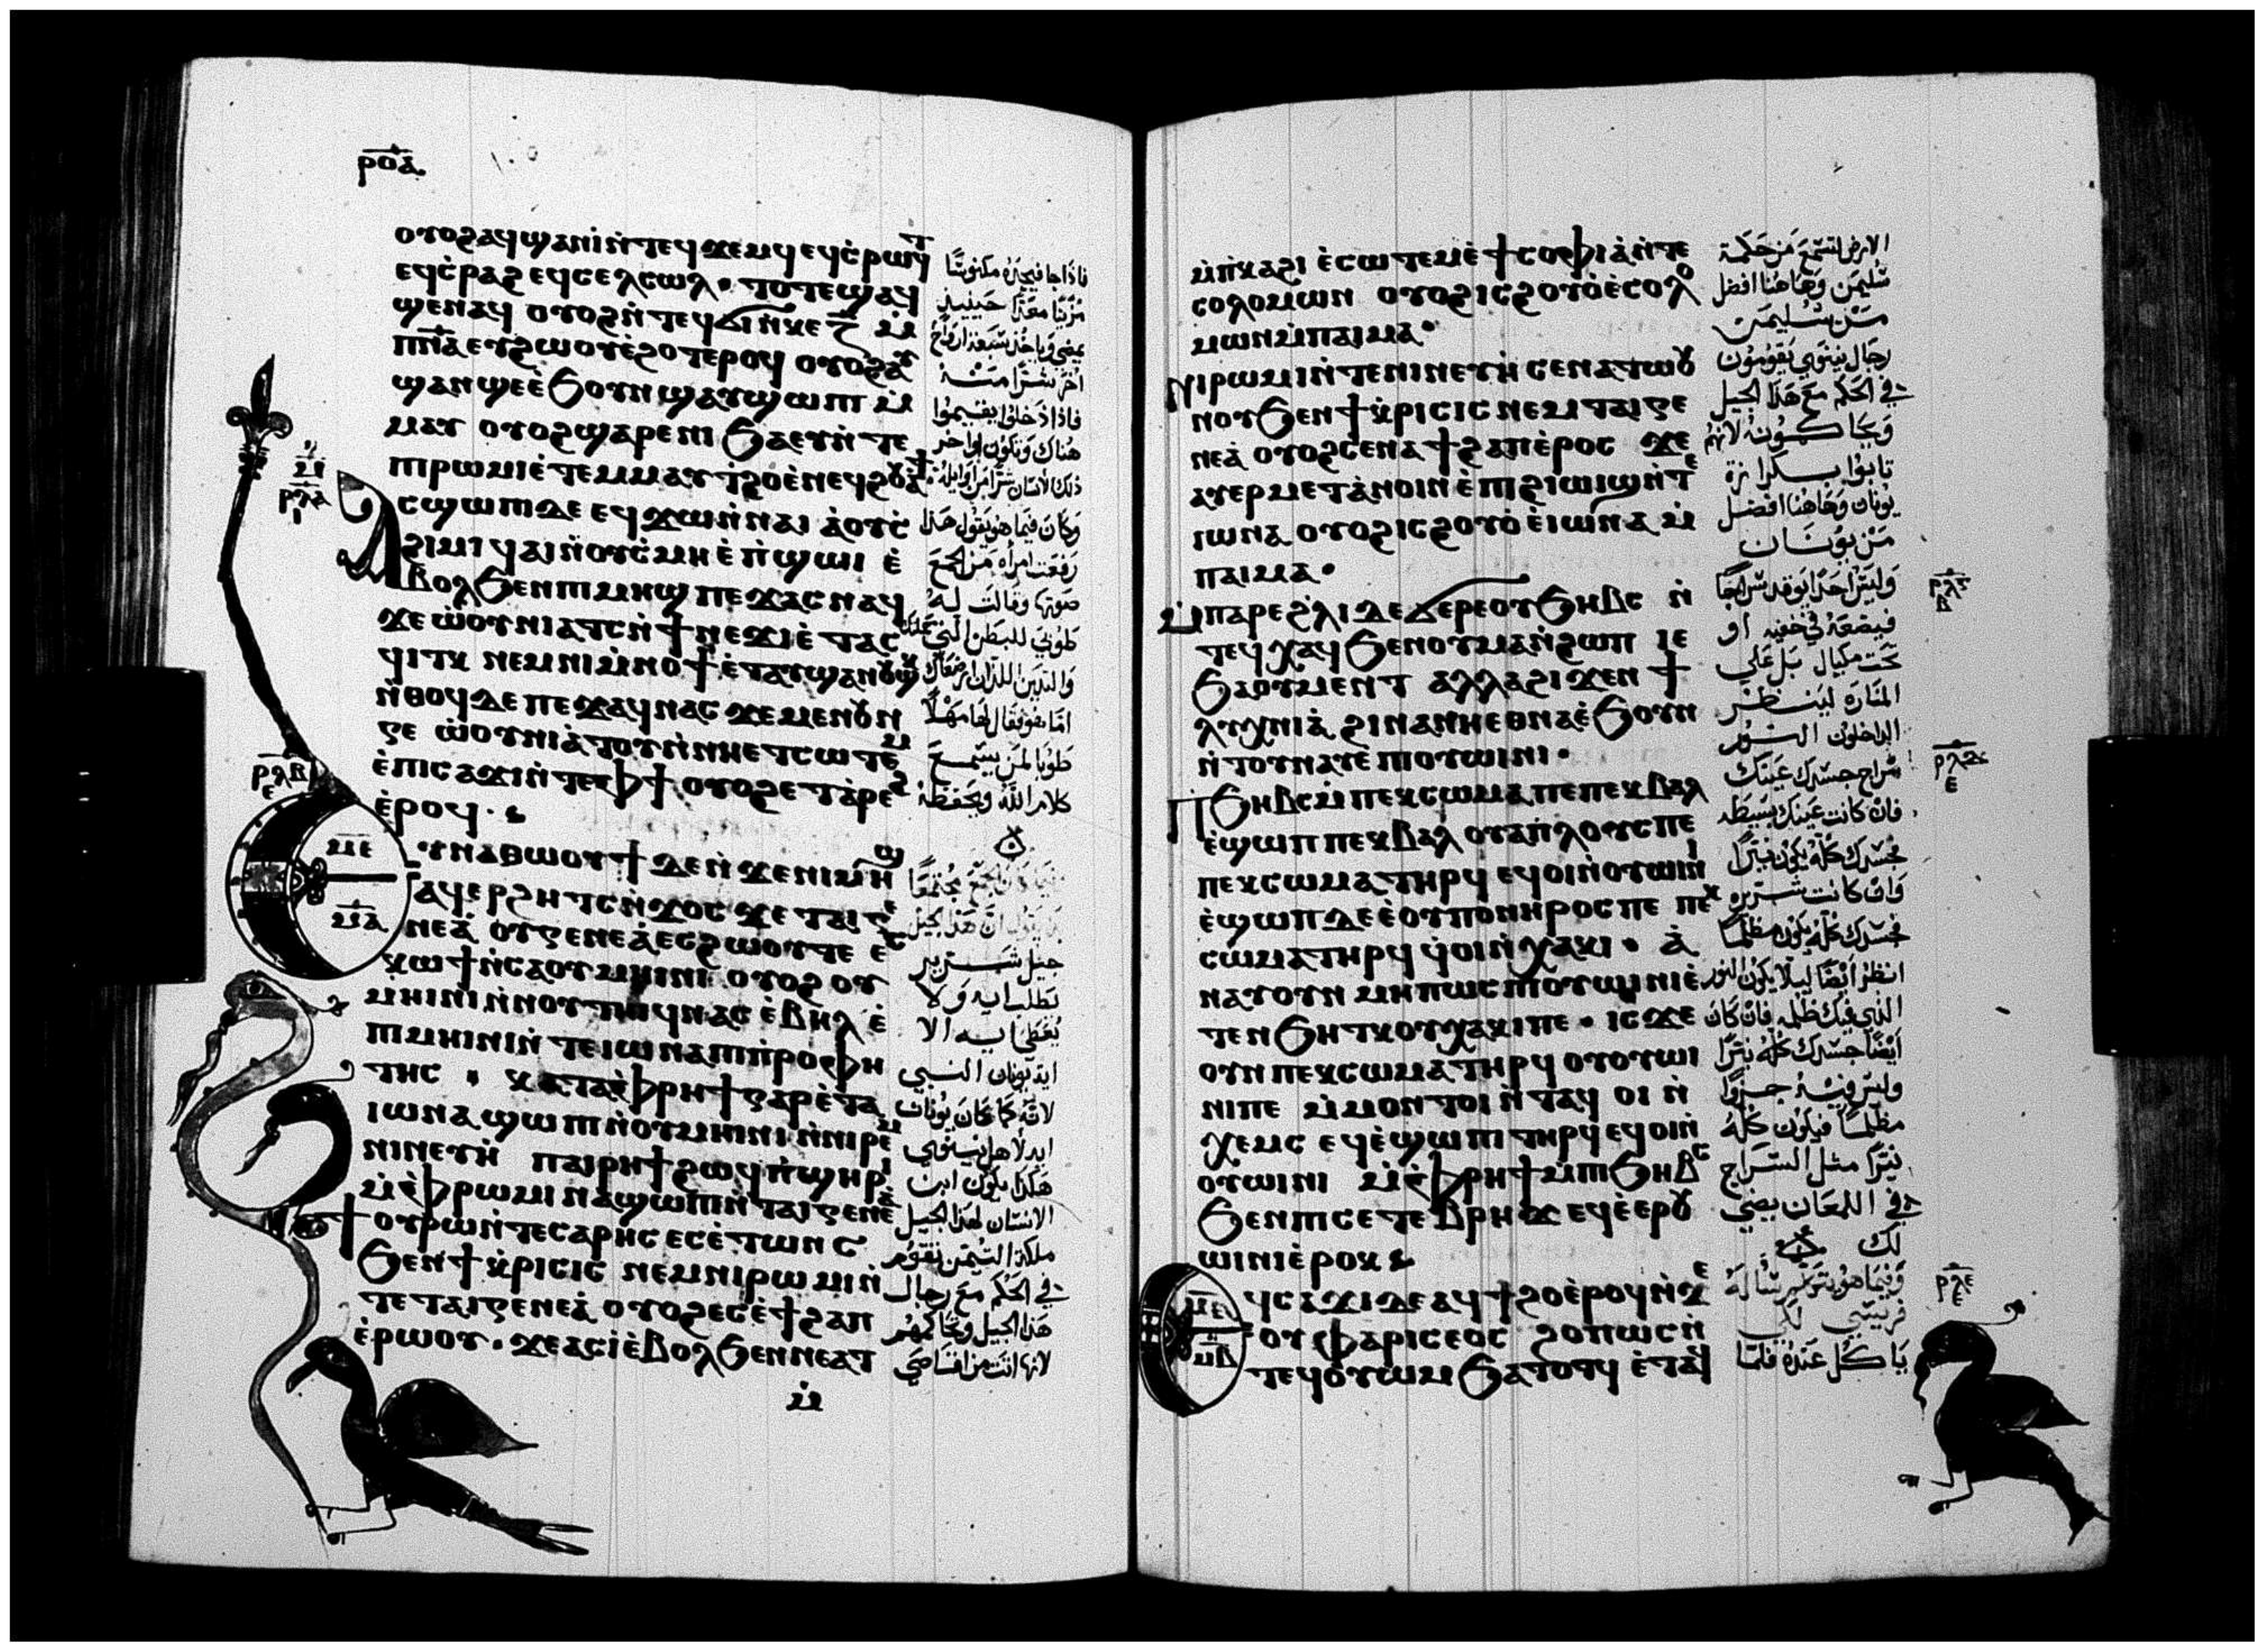 ⲣⲟⲁ
ⲟⲩⲟϩⲁϥϣⲁⲛⲓ̀ⲛ̀ⲧⲉϥϫⲉⲙϥ ⲉϥⲥ̀ⲣⲱϥⲧ
ⲉϥⲥ̀ⲣⲁϩ ⲉϥⲥⲉⲗⲥⲱⲗ· ⲧⲟⲧⲉϣⲁϥ
ϣⲉⲛⲁϥ ⲟⲩⲟϩⲛ̀ⲧⲉϥϭⲓⲛ̀ⲕⲉ ⲍ̅ ⲙ̀
ⲡ̅ⲛ̅ⲁ ⲉⲩϩⲱⲟⲩⲉ̀ϩⲟⲧⲉⲣⲟϥ ⲟⲩⲟϩⲁⲩ
ϣⲁⲛϣⲉⲉ̀ϧⲟⲩⲛ ϣⲁⲩϣⲱⲡⲓ ⲙ̀
ⲙⲁⲩ ⲟⲩⲟϩϣⲁⲣⲉⲛⲓ ϧⲁⲉⲩⲛ̀ⲧⲉ
ⲡⲓⲣⲱⲙⲓⲉ̀ⲧⲉⲙⲙⲁⲩ ϯϩⲟⲉ̀ⲛⲉϥϩⲟⲩⲁϯ·
ⲁⲥϣⲱⲡⲓⲇⲉ ⲉϥϫⲱⲛ̀ⲛⲁⲓ ⲁ̀ⲟⲩⲥ̀
ϩⲓⲙⲓ ϥⲁⲓⲛ̀ⲟⲩⲥ̀ⲙⲏ ⲉ̀ⲡ̀ϣⲱⲓ ⲉ̀
ⲃⲟⲗϧⲉⲛⲡⲓⲙⲏϣ ⲡⲉϫⲁⲥⲛⲁϥ
ϫⲉ ⲱ̀ⲟⲩⲛⲓⲁⲧⲥⲛ̀ϯⲛⲉϫⲓⲉ̀ⲧⲁⲥ
ϥⲓⲧⲕ ⲛⲉⲙⲛⲓⲙ̀ⲛⲟϯⲉ̀ⲧⲁⲩϣⲁⲛⲟⲩϣⲕ
ⲛ̀ⲑⲟϥⲇⲉ ⲡⲉϫⲁϥⲛⲁⲥ ϫⲉⲙⲉⲛⲟⲩⲛ
ϭⲉ ⲱ̀ⲟⲩⲛⲓⲁ̀ⲧⲟⲩⲛ̀ⲛⲏⲉⲧⲥⲱⲧⲉⲙ
ⲉ̀ⲡⲓⲥⲁϫⲓⲛ̀ⲧⲉⲫϯ ⲟⲩⲟϩⲉⲧⲁ̀ⲣⲉϩ
ⲉ̀ⲣⲟϥ·
ⲙⲉ
ⲙⲁ
ⲉⲩⲛⲁⲑⲱⲟⲩϯ ⲇⲉⲛ̀ϫⲉⲛⲓⲙⲏϣ
ⲁϥⲉⲣϩⲏⲧⲥⲛ̀ϫⲟⲥ ϫⲉ ⲧⲁⲓϭⲉ
ⲛⲉⲁ̀ ⲟⲩϭⲉⲛⲉⲁ̀ⲉⲥϩⲱⲟⲩⲧⲉ ⲉⲥ
ⲕⲱϯⲛ̀ⲥⲁⲟⲩⲙⲏⲓⲛⲓ ⲟⲩⲟϩ ⲟⲩ
ⲙⲏⲓⲛⲓⲛ̀ⲛⲟⲩⲧⲏⲓϥⲛⲁⲥ ⲉ̀ⲃⲏⲗ ⲉ̀
ⲡⲓⲙⲏⲓⲛⲓⲛ̀ⲧⲉⲓⲱⲛⲁⲡⲓⲡ̀ⲣⲟⲫⲏ
ⲧⲏⲥ · ⲕⲁⲧⲁⲫ̀ⲣⲏϯϭⲁⲣⲉ̀ⲧⲁ
ⲓⲱⲛⲁϣⲱⲡⲓⲛ̀ⲟⲩⲙⲏⲓⲛⲓⲛ̀ⲛⲓⲣⲉⲙ
ⲛⲓⲛⲉⲩⲏ̀ ⲡⲁⲓⲣⲏϯϩⲱϥⲡ̀ϣⲏⲣⲓ
ⲙ̀ⲫ̀ⲣⲱⲙⲓ ⲛⲁϣⲱⲡⲓⲛ̀ⲧⲁⲓϭⲉⲛⲉⲁ̀
ϯⲟⲩⲣⲱⲛ̀ⲧⲉⲥⲁⲣⲏⲥ ⲉⲥⲉ̀ⲧⲱⲛⲥ
ϧⲉⲛϯⲕ̀ⲣⲓⲥⲓⲥ ⲛⲉⲙⲛⲓⲣⲱⲙⲓⲛ̀
ⲧⲉⲧⲁⲓϭⲉⲛⲉⲁ̀ ⲟⲩⲟϩⲉⲥⲉ̀ϯϩⲁⲡ
ⲉ̀ⲣⲱⲟⲩ· ϫⲉⲁⲥⲓⲉ̀ⲃⲟⲗϧⲉⲛⲛⲉⲁⲧ
ⲙ̀
فاذا جا فيجده مكنوسًا
مزينًا معدًا حينيذ
يمضي وياخذ سبعة ارواح
اخر شرًا منه
فاذا دخلوا يقيموا
هناك وتكون اواخر
ذلك الانسان شرًا من اوايله
وكان فيما هو يقول هذا
رفعت امراه من الجمع
صوتها وقالت له
طوبي للبطن التي حملتك
والثديين اللذان ارضعاك
اما هو فقال لها مهلًا
طوبا لمن يسمع
كلام الله ويحفظه
جيل شرير
يطلب ايه ولا
يعطي ايه الا
ايه يونان النبي
لانه كما كان يونان
ايه لاهل نينوي
هكذا يكون ابن
الانسان لهذا الجيل
ملكة التيمن تقوم
في الحكم مع رجال
هذا الجيل وتحاكمهم
لانها اتت من اقاصي
ⲙ̀ⲡ̀ⲕⲁϩⲓ ⲉ̀ⲥⲱⲧⲉⲙⲉ̀ϯⲥⲟⲫⲓⲁ̀ⲛ̀ⲧⲉ
ⲥⲟⲗⲟⲙⲱⲛ ⲟⲩⲟϩⲓⲥϩⲟⲩⲟ̀ⲉ̀ⲥⲟⲗⲟ
ⲙⲱⲛⲙ̀ⲡⲁⲓⲙⲁ·
ⲛⲓⲣⲱⲙⲓⲛ̀ⲧⲉⲛⲓⲛⲉⲩⲏ̀ ⲥⲉⲛⲁⲧⲱⲟⲩ
ⲛⲟⲩϧⲉⲛϯⲕ̀ⲣⲓⲥⲓⲥ ⲛⲉⲙⲧⲁⲓϭⲉ
ⲛⲉⲁ̀ ⲟⲩⲟϩⲥⲉⲛⲁϯϩⲁⲡⲉ̀ⲣⲟⲥ ϫⲉ
ⲁⲩⲉⲣⲙⲉⲧⲁ̀ⲛⲟⲓⲛ ⲉ̀ⲡⲓϩⲓⲱⲓϣⲛ̀ⲧⲉ
ⲓⲱⲛⲁ ⲟⲩⲟϩⲓⲥϩⲟⲩⲟ̀ⲉ̀ⲓⲱⲛⲁ ⲙ̀
ⲡⲁⲓⲙⲁ·
ⲙ̀ⲡⲁⲣⲉϩ̀ⲗⲓⲇⲉϭⲉⲣⲉⲟⲩϧⲏⲃⲥ ⲛ̀
ⲧⲉϥⲭⲁϥϧⲉⲛⲟⲩⲙⲁⲛ̀ϩⲱⲡ ⲓⲉ
ϧⲁⲟⲩⲙⲉⲛⲧ ⲁⲗⲗⲁϩⲓϫⲉⲛ ϯ
ⲗⲩⲭⲛⲓⲁ̀ ϩⲓⲛⲁⲛⲏⲉⲑⲛⲁⲉ̀ϧⲟⲩⲛ
ⲛ̀ⲧⲟⲩⲛⲁⲩⲉ̀ⲡⲓⲟⲩⲱⲓⲛⲓ·
ⲡϧⲏⲃⲥⲙ̀ⲡⲉⲕⲥⲱⲙⲁⲡⲉⲡⲉⲕⲃⲁⲗ
ⲉ̀ϣⲱⲡ ⲡⲉⲕⲃⲁⲗ ⲟⲩⲁⲡ̀ⲗⲟⲩⲥⲡⲉ
ⲡⲉⲕⲥⲱⲙⲁⲧⲏⲣϥ ⲉϥⲟⲓⲛ̀ⲟⲩⲱⲓⲛⲓ
ⲉ̀ϣⲱⲡⲇⲉⲉ̀ⲟⲩⲡⲟⲛⲏⲣⲟⲥⲡⲉ ⲡⲉⲕ
ⲥⲱⲙⲁⲧⲏⲣϥ ϥ̀ⲟⲓⲛ̀ⲭⲁⲕⲓ· ⲁ̀
ⲛⲁⲩⲟⲩⲛ ⲙⲏⲡⲱⲥⲡⲓⲟⲩⲱⲓⲛⲓⲉ̀
ⲧⲉⲛϧⲏⲧⲕⲟⲩⲭⲁⲕⲓⲡⲉ· ⲓⲥϫⲉ
ⲟⲩⲛ ⲡⲉⲕⲥⲱⲙⲁⲧⲏⲣϥ ⲟⲩⲟⲩⲱⲓ
ⲛⲓⲡⲉ ⲙ̀ⲙⲟⲛⲧⲟⲓⲛ̀ⲧⲁϥ ⲟⲓ ⲛ̀
ⲭⲉⲙⲥ ⲉϥⲉ̀ϣⲱⲡⲓ ⲧⲏⲣϥⲉϥⲟⲓⲛ̀
ⲟⲩⲱⲓⲛⲓ ⲙ̀ⲫ̀ⲣⲏϯⲙ̀ⲡⲓϧⲏⲃⲥ
ϧⲉⲛⲡⲓⲥⲉⲧⲉⲃⲣⲏϫ ⲉϥⲉ̀ⲉⲣⲟⲩ
ⲱⲓⲛⲓⲉ̀ⲣⲟⲕ
ⲙⲃ
ⲉϥⲥⲁϫⲓⲇⲉ ⲁϥϯϩⲟⲉ̀ⲣⲟϥⲛ̀ϫⲉ
ⲟⲩⲫⲁⲣⲓⲥⲉⲟⲥ ϩⲟⲡⲱⲥⲛ̀
ⲧⲉϥⲟ̀ⲩⲱⲙ ϧⲁⲧⲟⲧϥ ⲉ̀ⲧⲁϥ
الارض لتسمع من حكمة
سليمن وهاهنا افضل
من سليمن
رجال نينوي يقومون
في الحكم مع هذا الجيل
ويحاكمونه لانهم
تابوا بكرازة
يونان وهاهنا افضل
من يونان
وليس احدًا يوقد سراجًا
فيضعه في خفيه او
تحت مكيال بل علي
المناره لينظر
الداخلون النور
سراج جسدك عينك
فان كانت عينك بسيطه
فجسدك كله يكون نيرًا
وان كانت شريره
فجسدك كله يكون مظلمًا
انظر ايضًا ليلا يكون النور
الذي فيك ظلمه فان كان
ايضًا جسدك كله نيرًا
وليس فيه جزوًا
مظلمًا فيكون كله
نيرًا مثل السراج
في اللمعان يضي
لك
وفيما هو يتكلم ساله
فريسي لكي
ياكل عنده فلما